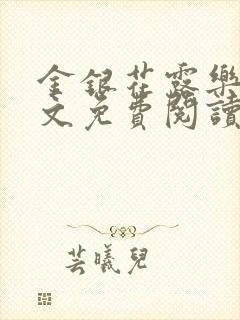 金銀花露樂
文免費閱讀
芸曦兒